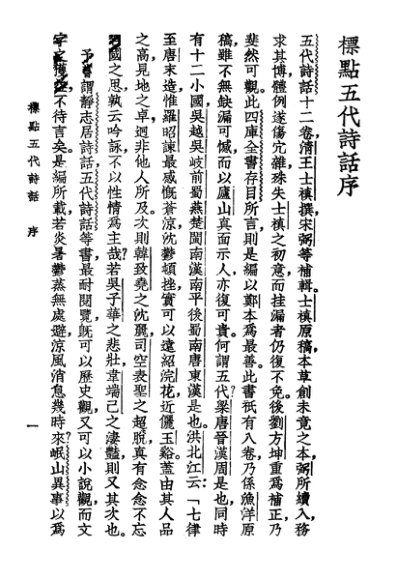 標點五代詩話序
五代詩話十二卷,清王士禛撰,宋弼等補輯。士禛原稿,本草創未竟之本,弼所續入,務
求其博,體例遂傷冗雜,殊失士禛之初意,而挂漏者仍復不免。後劉方坤重爲補正,乃
斐然可觀。此四庫全書存目所言,則是編以鄭本爲最善。此書祇有八卷,乃係漁洋原
稿,雖不無缺漏可憾,而以廬山真面示人,亦復可貴。何謂五代?梁唐晉漢周是也,同時
有十二小國,吳越吳岐前蜀燕楚閩南漢南平後蜀南唐東漢是也。洪北江云:「七律
至唐末造,惟羅昭諫最感慨蒼涼,沈鬱頓挫,實可以遠紹浣花,近儷玉谿。蓋由其人品
之高,見地之卓,迥非他人所及。次則韓致堯之沈麗,司空表聖之超脫,真有念念不忘
國之思,孰云吟詠不以性情爲主哉?若吳子華之悲壯,韋端己之淒豔,則又其次也。
予嘗謂靜志居詩話,五代詩話等書,最耐閱覽,旣可以歷史觀,又可以小說觀,而文
字之,不待言矣。是編所載,若炎暑鬱蒸無處避,涼風消息幾時來?岷山異事,以爲
標點五代詩話 序
一